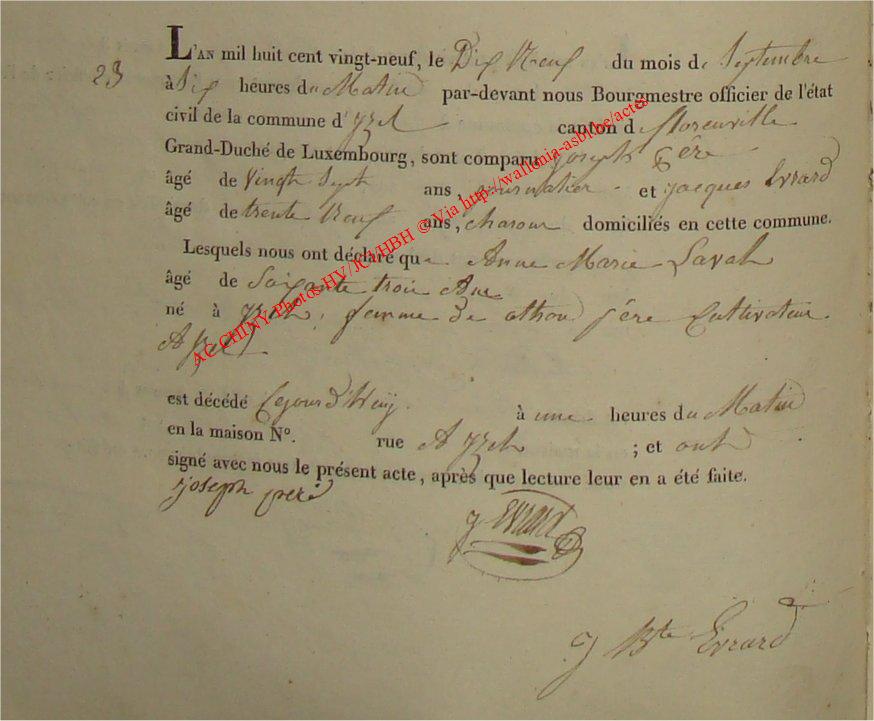 23
L'AN mil huit cent vingt-neuf, le Dix Neuf du mois de Septembre
à Six heures du Matin par-devant nous Bourgmestre officier de l'état
civil de la commune d'Yzel canton d florenville
Grand-Duché de Luxembourg, sont comparu joseph père
âgé de Vingh Septh ans, journalier et jacques Evrard
âgé de trente Neuf ans, charon domiciliés en cette commune.
Lesquels nous ont déclaré que Anne Marie Lavah
âgé de Soixante trois Ans
né à Yzel, femme de père Cultivateur
A Yzel
est décédé Cejourd'huij à une heures du Matin
en la maison N°. rue A yzel ; et onh
signé avec nous le présent acte, après que lecture leur en a été faite.
joseph pere
J Evrard
J Bte Evrard
AC CHINY-Photos HV/JCl/HBH @Via http://wallonia-asbl.be/actes